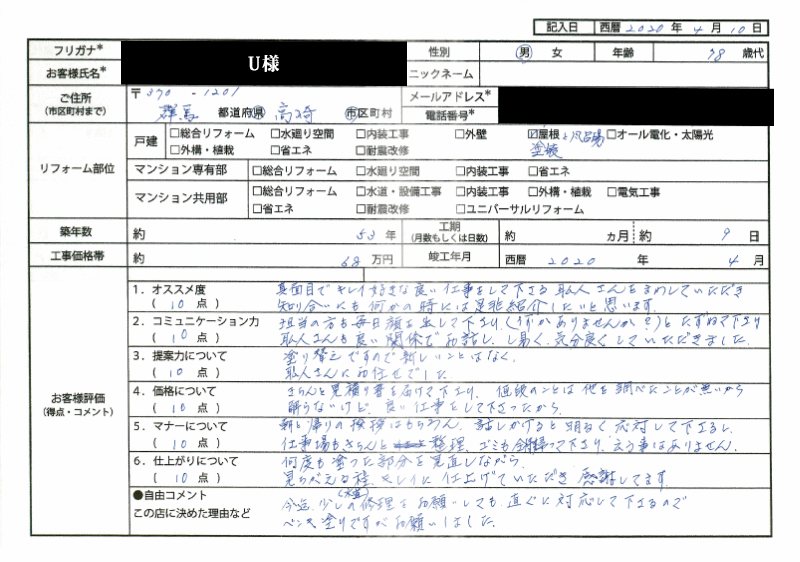 記入日 西暦 2020 年 4 月 10 日
フリガナ* U様 性別 男 女 年齢 78 歳代
お客様氏名* ニックネーム
ご住所 (市区町村まで) 〒370-1201 メールアドレス*
群馬 都道府県 高崎 市区町村 電話番号*
リフォーム部位 戸建 □総合リフォーム □水廻り空間 □内装工事 □外壁 ☑屋根と風呂場 塗装 □オール電化・太陽光
□外構・植栽 □省エネ □耐震改修
マンション専有部 □総合リフォーム □水廻り空間 □内装工事 □省エネ
マンション共用部 □総合リフォーム □水道・設備工事 □内装工事 □外構・植栽 □電気工事
□省エネ □耐震改修 □ユニバーサルリフォーム
築年数 約 53 年 工期 (月数もしくは日数) 約 ヵ月 約 9 日
工事価格帯 約 68 万円 竣工年月 西暦 2020 年 4 月
お客様評価 (得点・コメント)
1．オススメ度 真面目でキレイ好きな良い仕事をして下さる職人さんをまわしていただき
( 10 点 ) 知り合いにも何かの時には是非紹介したいと思います。
2．コミュニケーション力 担当の方も毎日顔を出して下さり、(何かありませんか?)とたずねて下さり
( 10 点 ) 職人さんも良い関係でお話し、し易く、気分良くしていただきました。
3．提案力について 塗り替えですので新しいことはなく、
( 10 点 ) 職人さんにお任せでした。
4．価格について きちんと見積り書を届けて下さり、値段のことは他を調べたことが無いから
( 10 点 ) 解らないけど、良い仕事をして下さったから。
5．マナーについて 朝と帰りの挨拶はもちろん、話しかけると明るく応対して下さるし、
( 10 点 ) 仕事場もきちんと整理、ゴミも全部持って下さり、言う事はありません。
6．仕上がりについて 何度も塗った部分を見直しながら、
( 10 点 ) 見ちがえる程、キレイに仕上げていただき感謝してます。
●自由コメント 今迄、少しの修理をお願いしても、直ぐに対応して下さるので
この店に決めた理由など ペンキ塗りですがお願いしました。